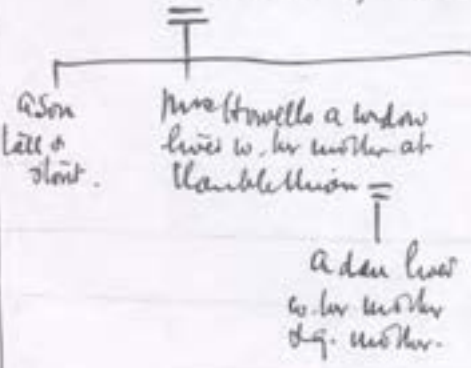 a son
tall &
stout.
Mrs Howells a widow
lives w. her mother at
Llanblethian
a dau lives
w. her mother
& g. mother.